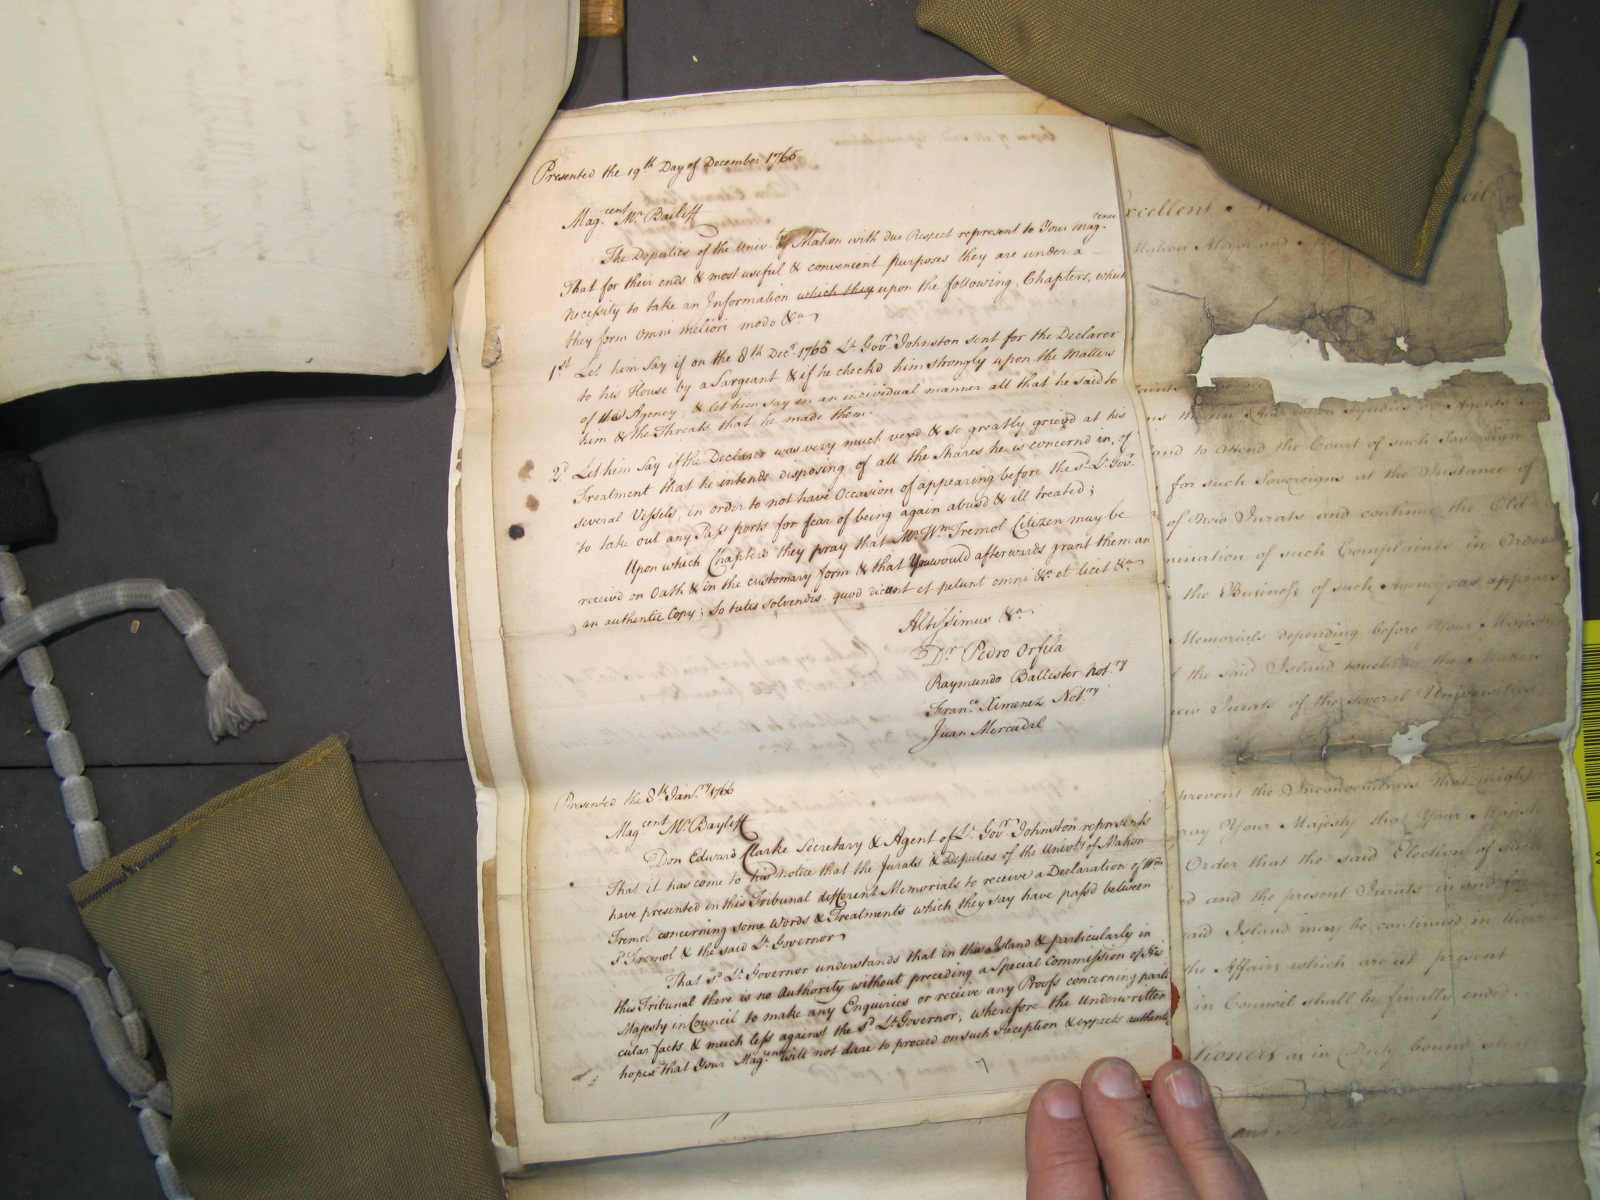 Presented the 19th Day of December 1765
Mag.cent Mr Bailiff
The Deputies of the Univ.ty of Mahon with due Respect represent to Your Mag.cence
That for their ends & most useful & convenient purposes they are under a
necessity to take an Information which they upon the following Chapters, which
they form omni meliori modo &a
1st Let him Say if on the 8th Decr. 1765 Lt. Govr. Johnston sent for the Declarer
to his House by a Sargeant & if he check'd him strongly upon the Matters
of this Agency, & let him say in an individual manner all that he Said to
him & the Threats that he made them.
2d Let him Say if the Declarer was very much vex'd & so greatly griev'd at his
Treatment that he intends disposing of all the Shares he is concern'd in, of
several Vessels, in order to not have Occasion of appearing before the sd. Lt. Govr.
to take out any Pass ports for fear of being again abus'd & ill treated;
Upon which Chapters they pray that Mr. Wm. Tremol Citizen may be
receiv'd on Oath & in the customary form & that You would afterwards grant them an
an authentic Copy; So tutis Solvendis quod dicunt et petunt omni &a et licet &a
Altissimus &a.
Dr. Pedro Orfila
Raymundo Ballester Notry
Franco. Ximenez Notry
Juan Mercadal
Presented the 8th Janry. 1766
Magcent Mr. Bayliff
Don Edward Clarke Secretary & Agent of Lt. Govr. Johnston represents
That it has come to his notice that the Jurats & Deputies of the Univty of Mahon
have presented in this Tribunal different Memorials to receive a Declaration of Wm
Tremol concerning some Words & Treatments which they say have pass'd between
sd. Tremol & the said Lt. Governor
That sd. Lt. Governor understands that in this Island & particularly in
this Tribunal there is no Authority without preceding a Special Commission of His
Majesty in Council to make any Enquiries or receive any Proofs concerning parti
cular facts & much less against the sd. Lt. Governor; wherefore the Underwritten
hopes that Your Mag.cence will not dare to proceed on such Reception & expects authentic
7
xcellent
and to attend the Court of such Sovereign
for such Sovereigns at the Instance of
of New Jurats and continue the Old
mination of such Complaints in Order
the Business of such Agency as appears
Memorials depending before Your Majesty
the said Island touching the
new Jurats of the several Universities
prevent the Inconveniences that might
ray Your Majesty that Your Majesty
Order that the said Election of
ed and the present Jurats in
said Island may be continued in their
the Affairs which are at present
in Council shall be finally ended.
tioners as in Duty bound shall